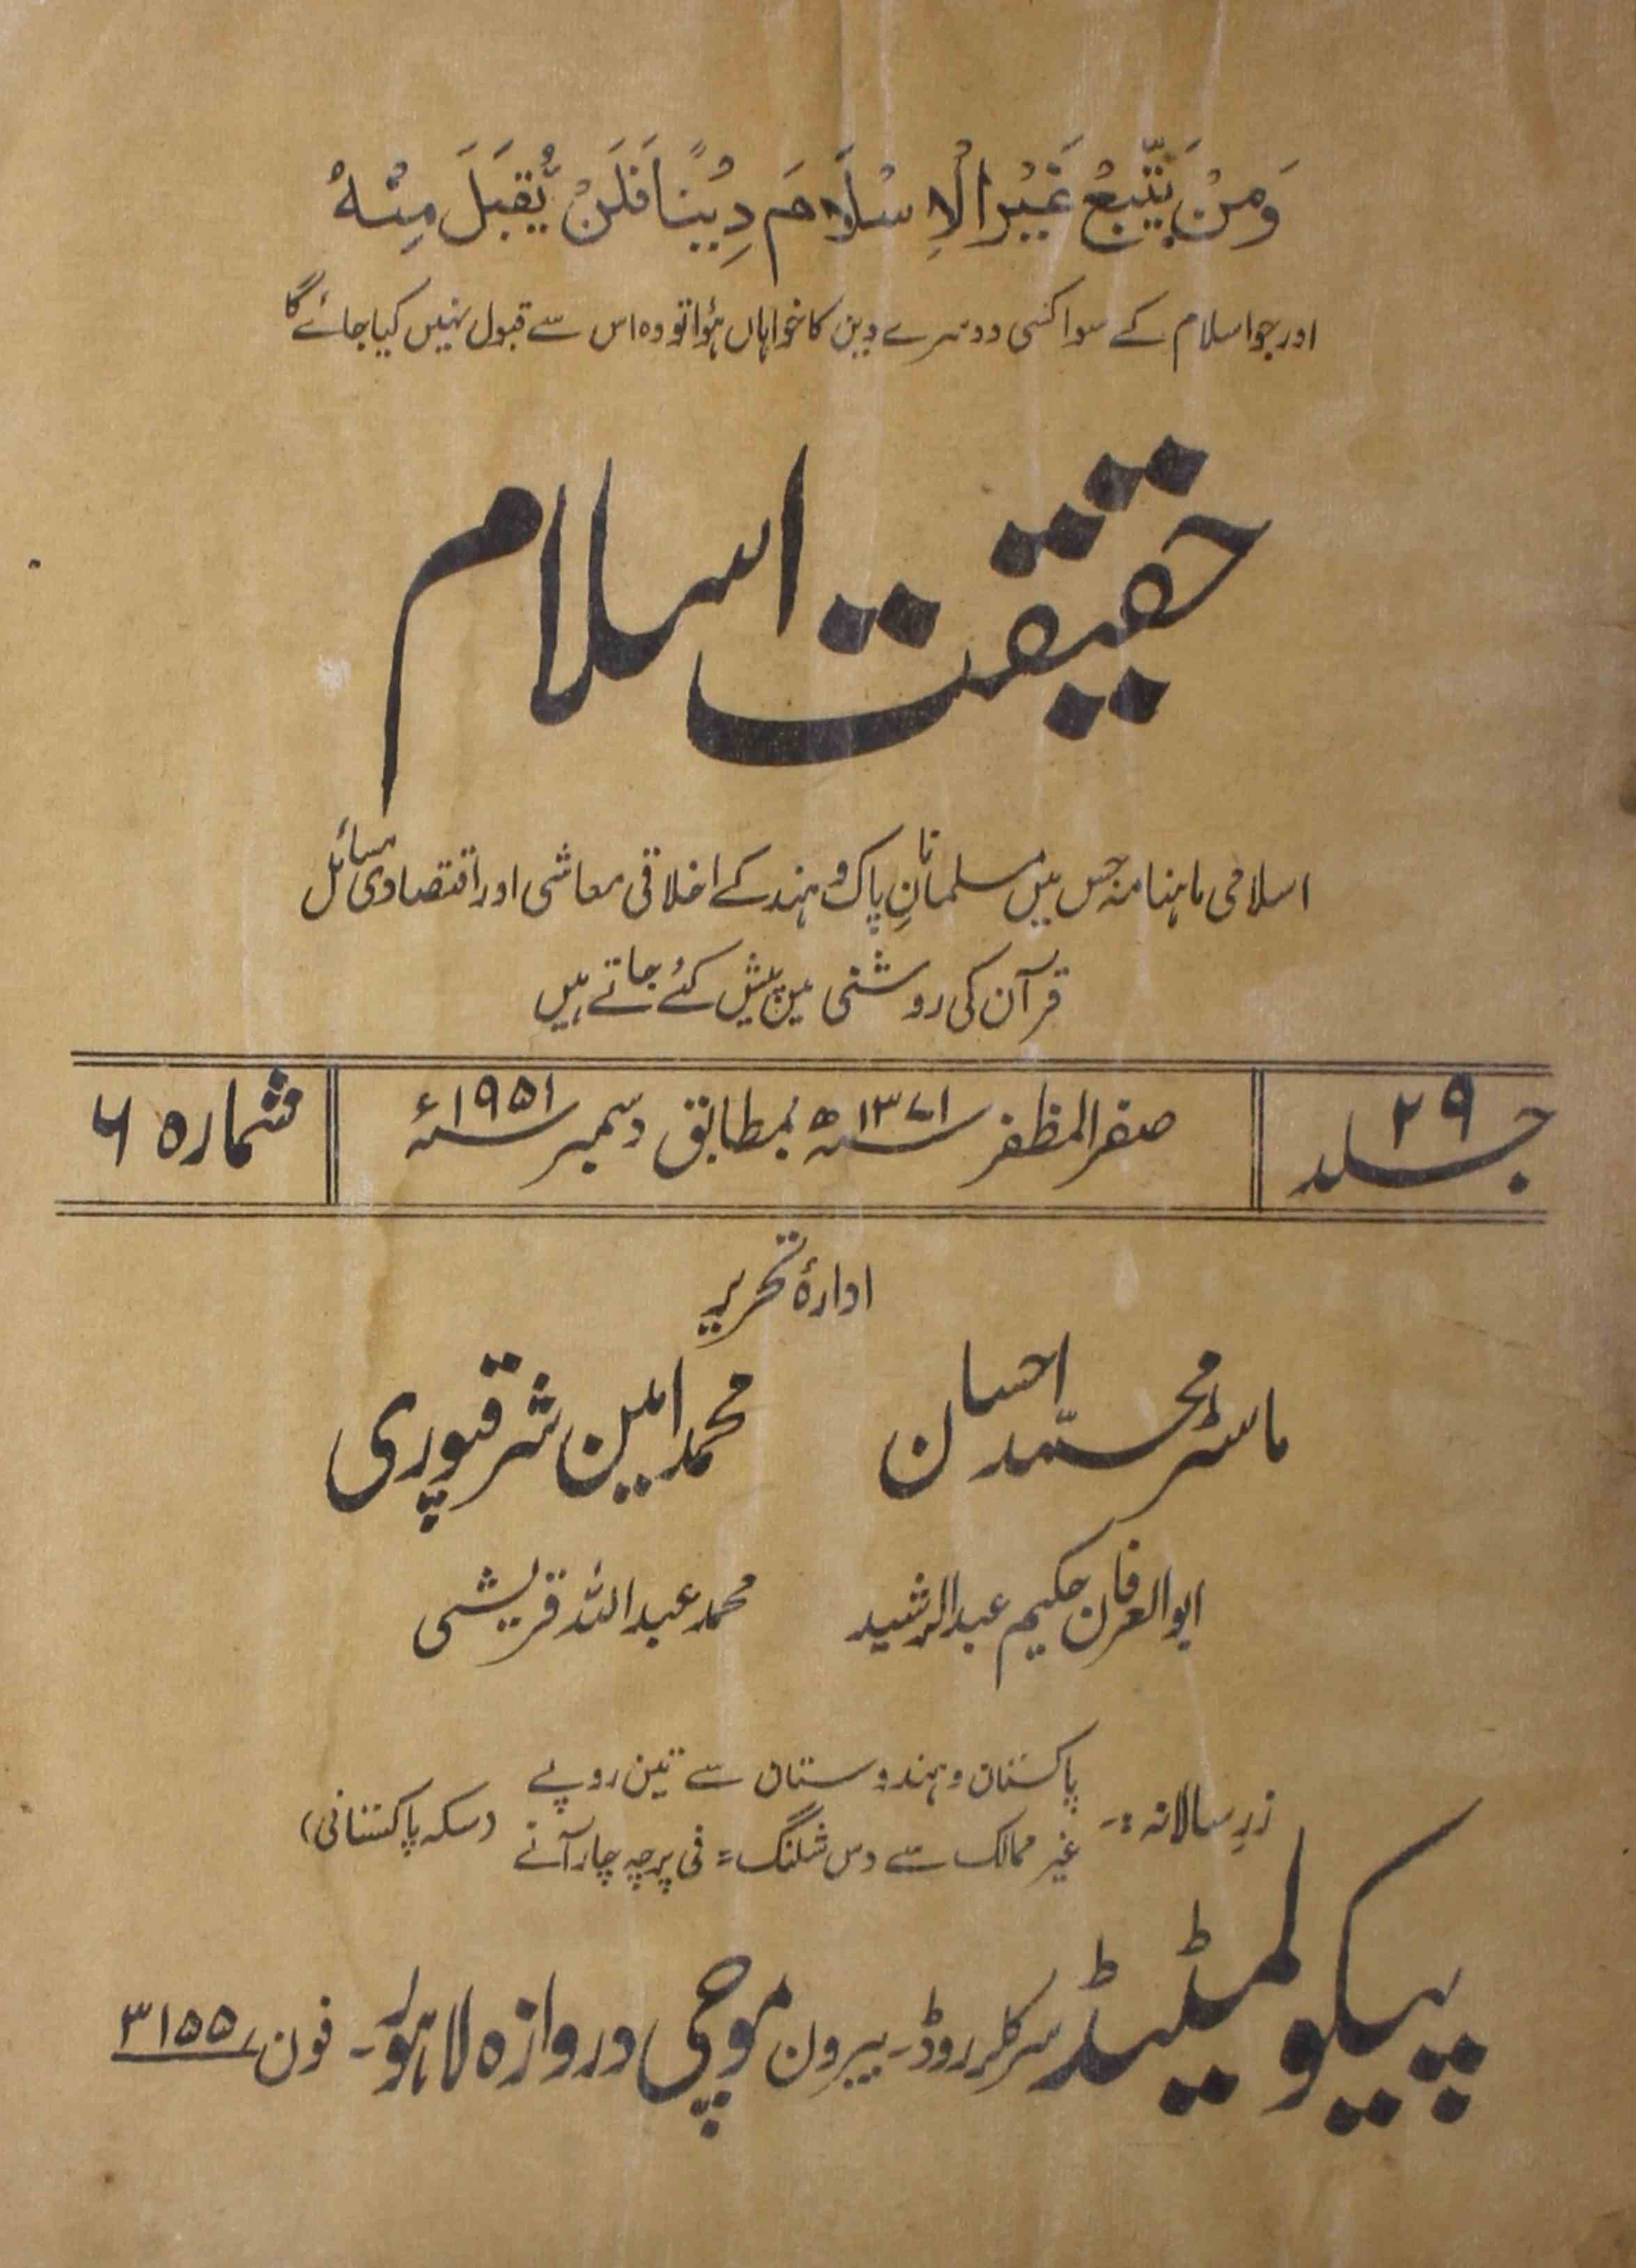 وَمَنْ يَّتَّبِعْ غَيْرَ الْاِسْلَامَ دِيْنًا فَلَنْ يُّقْبَلَ مِنْهُ
اور جو اسلام کے سوا کسی دوسرے دین کا خواہاں ہؤا تو وہ اس سے قبول نہیں کیا جائے گا
حقیقت اسلام
اسلامی ماہنامہ جس میں مسلمانانِ پاک و ہند کے اخلاقی معاشی اور اقتصادی مسائل
قرآن کی روشنی میں پیش کئے جاتے ہیں
جلد ۲۹
صفر المظفر سنہ ۱۳۷۱ھ بمطابق دسمبر سنہ ۱۹۵۱ء
شمارہ ۶
ادارۂ تحریر
ماسٹر محمد احسان محمد امین شرقپوری
ابوالعرفان حکیم عبدالرشید محمد عبداللہ قریشی
زرِ سالانہ :- پاکستان و ہندوستان سے تین روپے
غیر ممالک سے دس شلنگ = فی پرچہ چار آنے (سکہ پاکستانی)
پیکو لمیٹیڈ سرکلر روڈ - بیرون موچی دروازہ لاہور - فون ۳۱۵۵